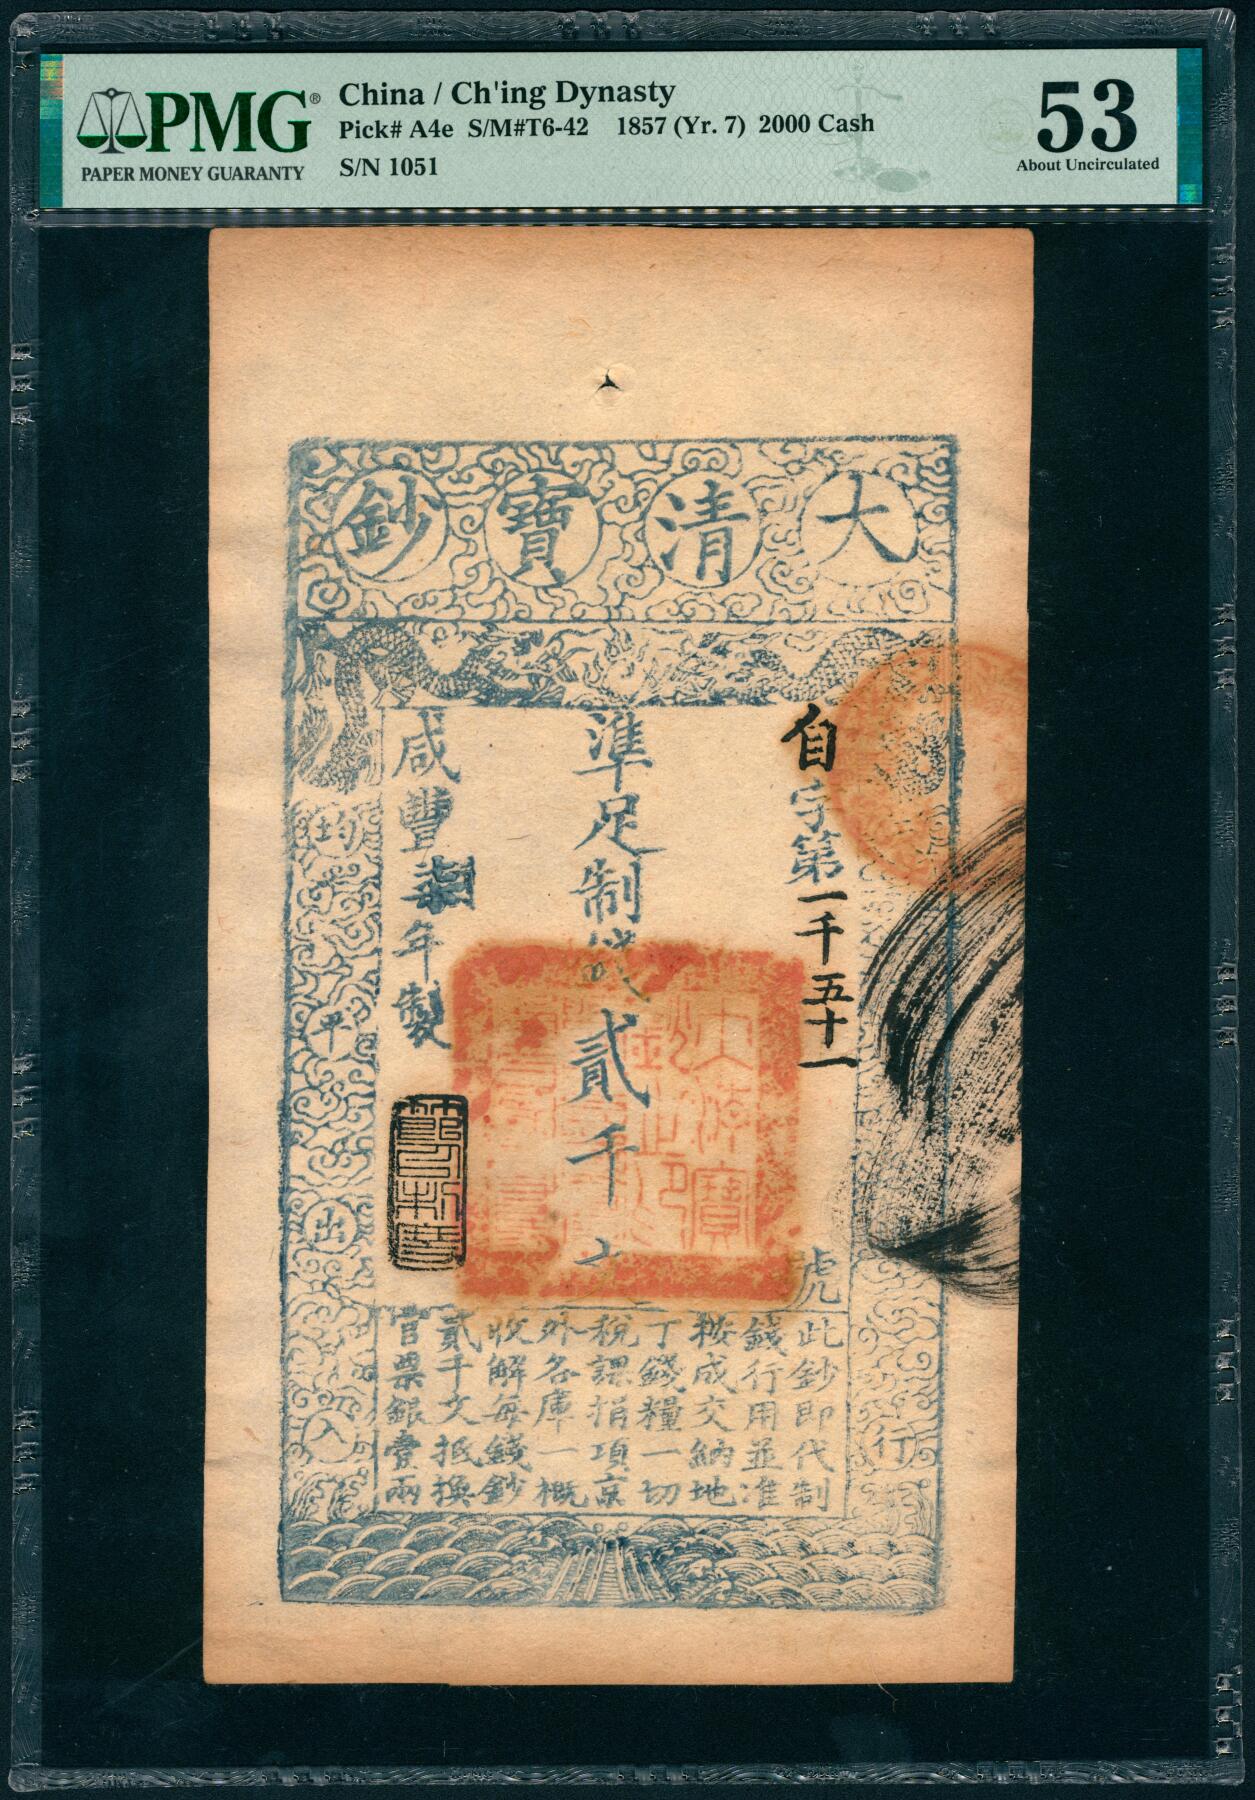 PMG®
PAPER MONEY GUARANTY
China / Ch'ing Dynasty
Pick# A4e S/M#T6-42 1857 (Yr. 7) 2000 Cash
S/N 1051
53
About Uncirculated
大清寶鈔
自字第一千五十一
虎
準足制錢貳千文
咸豐柒年製
均平出入
行
此鈔即代制
錢行用並准
按成交納地
丁錢糧一切
稅課捐項京
外各庫一概
收解每錢鈔
貳千文抵換
官票銀壹兩